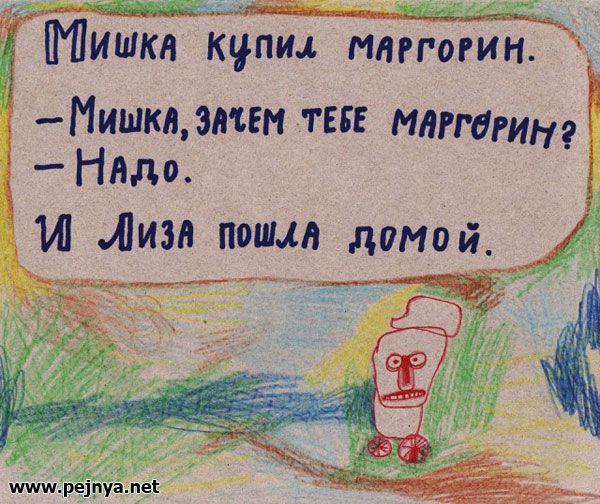 Мишка купил маргорин.
– Мишка, зачем тебе маргорин?
– Надо.
И Лиза пошла домой.
www.pejnya.net